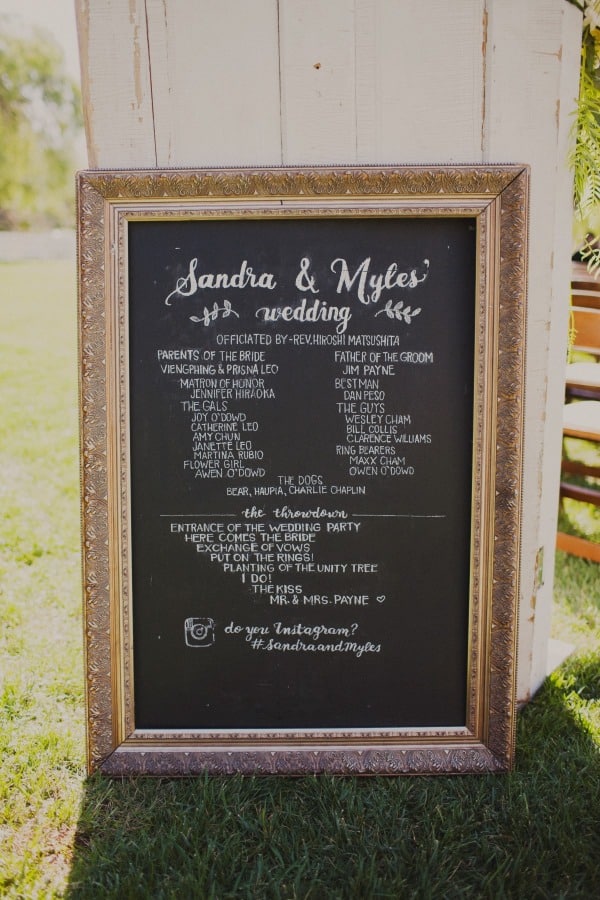 Sandra & Myles'
wedding
OFFICIATED BY - REV. HIROSHI MATSUSHITA
PARENTS OF THE BRIDE
VIENGPHING & PRISNA LEO
MATRON OF HONOR
JENNIFER HIRAOKA
THE GALS
JOY O'DOWD
CATHERINE LEO
AMY CHUN
JANETTE LEO
MARTINA RUBIO
FLOWER GIRL
AWEN O'DOWD
FATHER OF THE GROOM
JIM PAYNE
BEST MAN
DAN PESO
THE GUYS
WESLEY CHAM
BILL COLLIS
CLARENCE WILLIAMS
RING BEARERS
MAXX CHAM
OWEN O'DOWD
THE DOGS
BEAR, HAUPIA, CHARLIE CHAPLIN
the throwdown
ENTRANCE OF THE WEDDING PARTY
HERE COMES THE BRIDE
EXCHANGE OF VOWS
PUT ON THE RINGS!
PLANTING OF THE UNITY TREE
I DO!
THE KISS
MR. & MRS. PAYNE ♡
do you Instagram?
#SandraandMyles